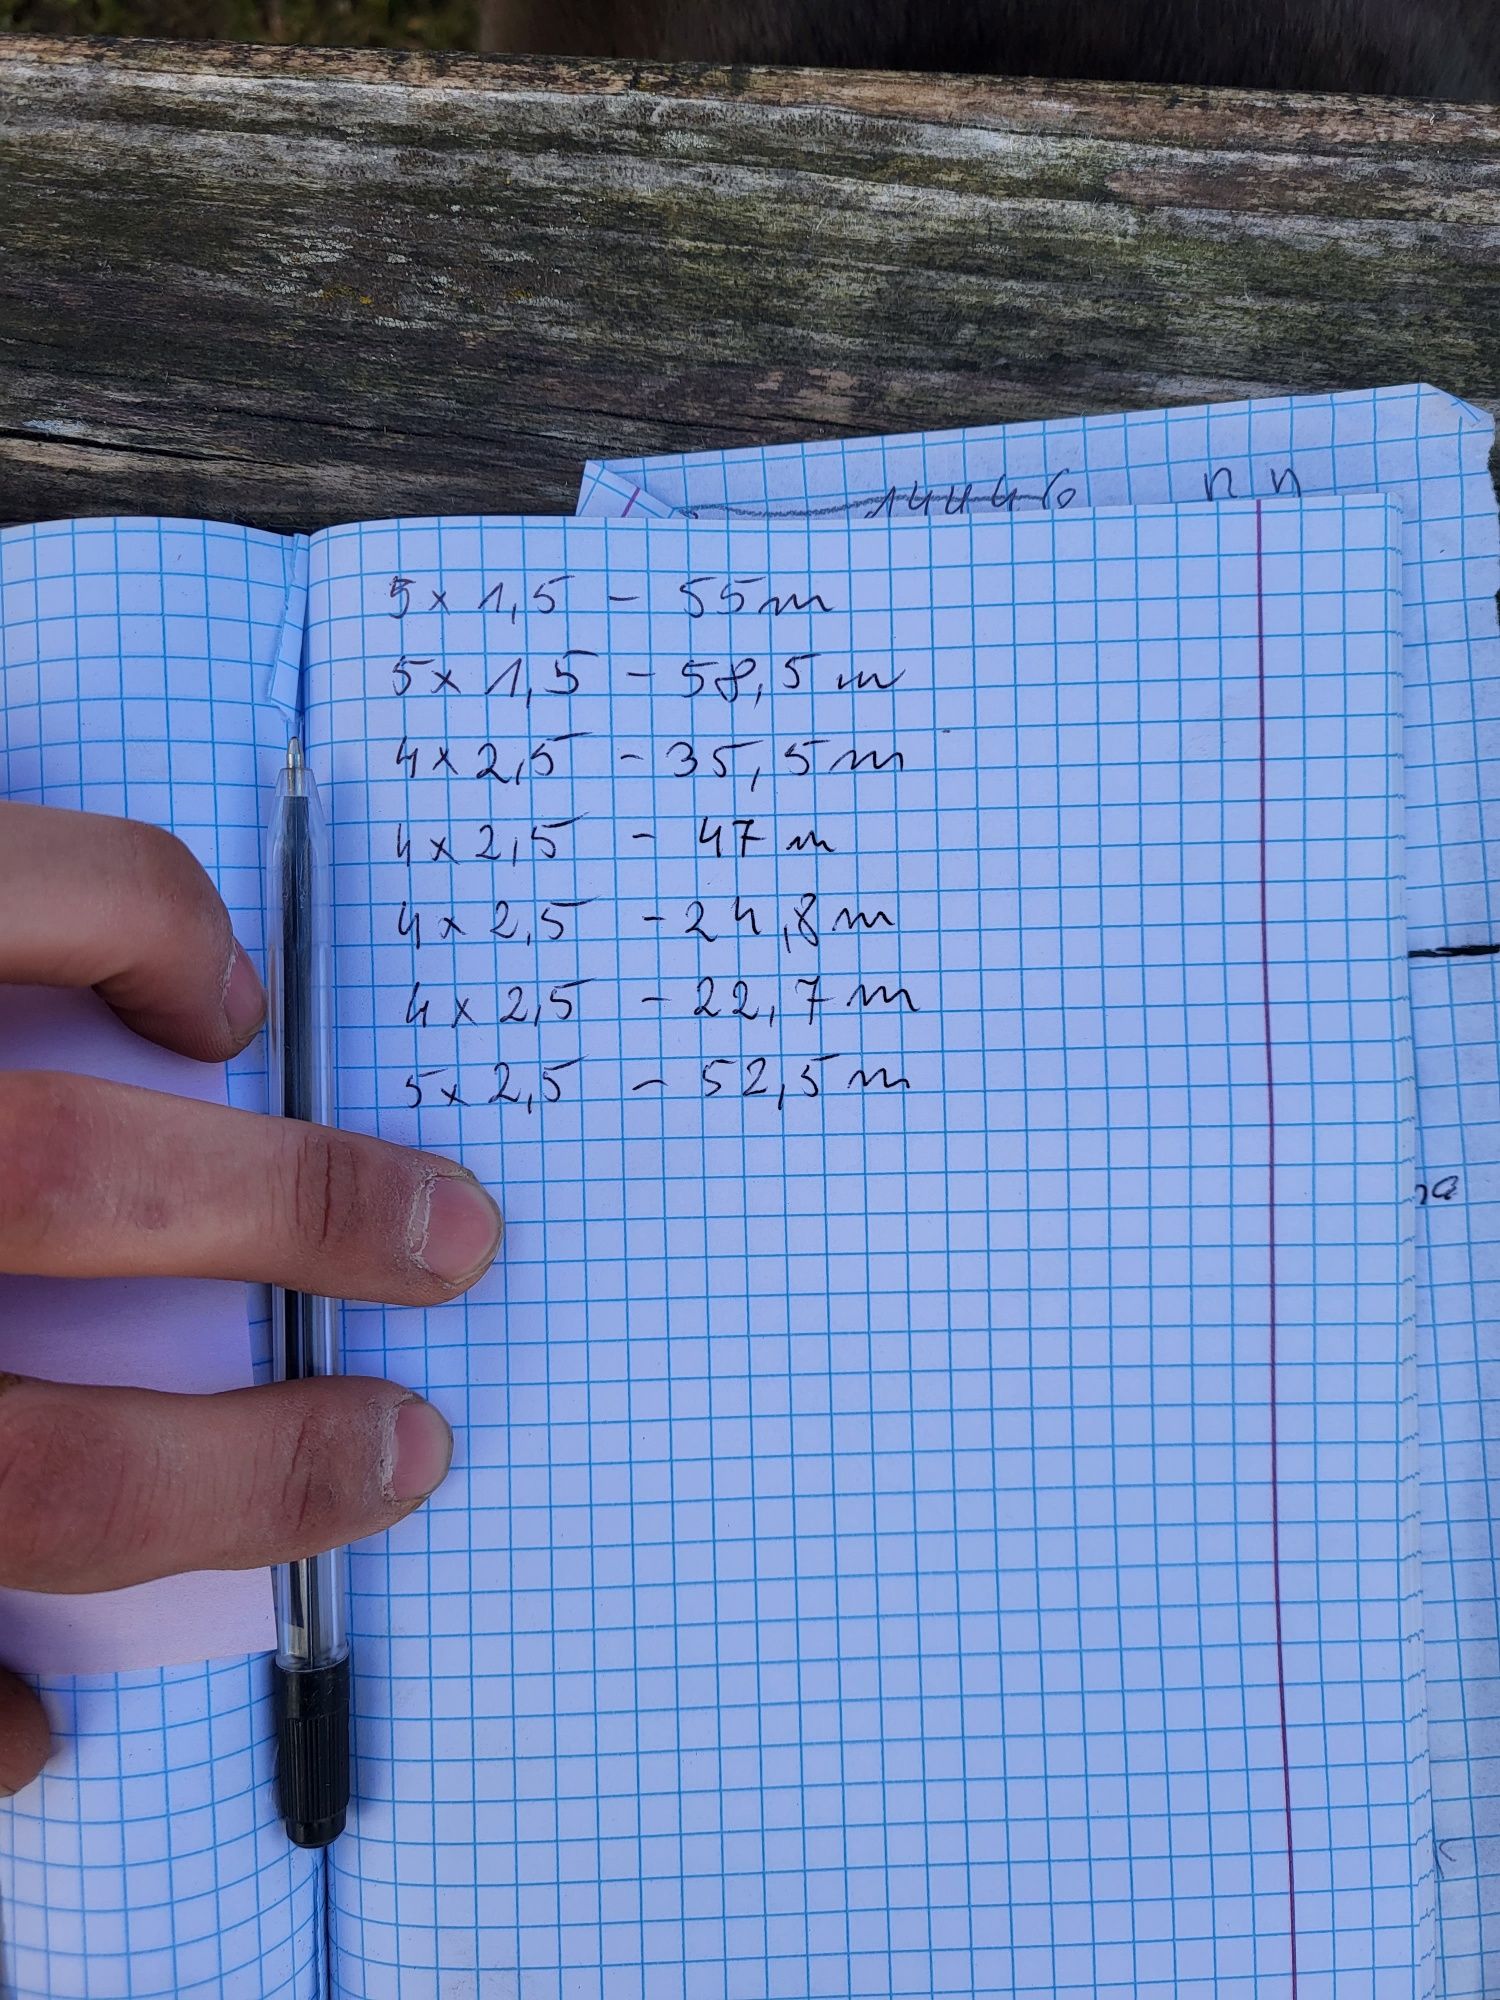 14446
5 x 1,5 - 55m
5 x 1,5 - 58,5 m
4 x 2,5 - 35,5 m
4 x 2,5 - 47 m
4 x 2,5 - 24,8 m
4 x 2,5 - 22,7 m
5 x 2,5 - 52,5 m